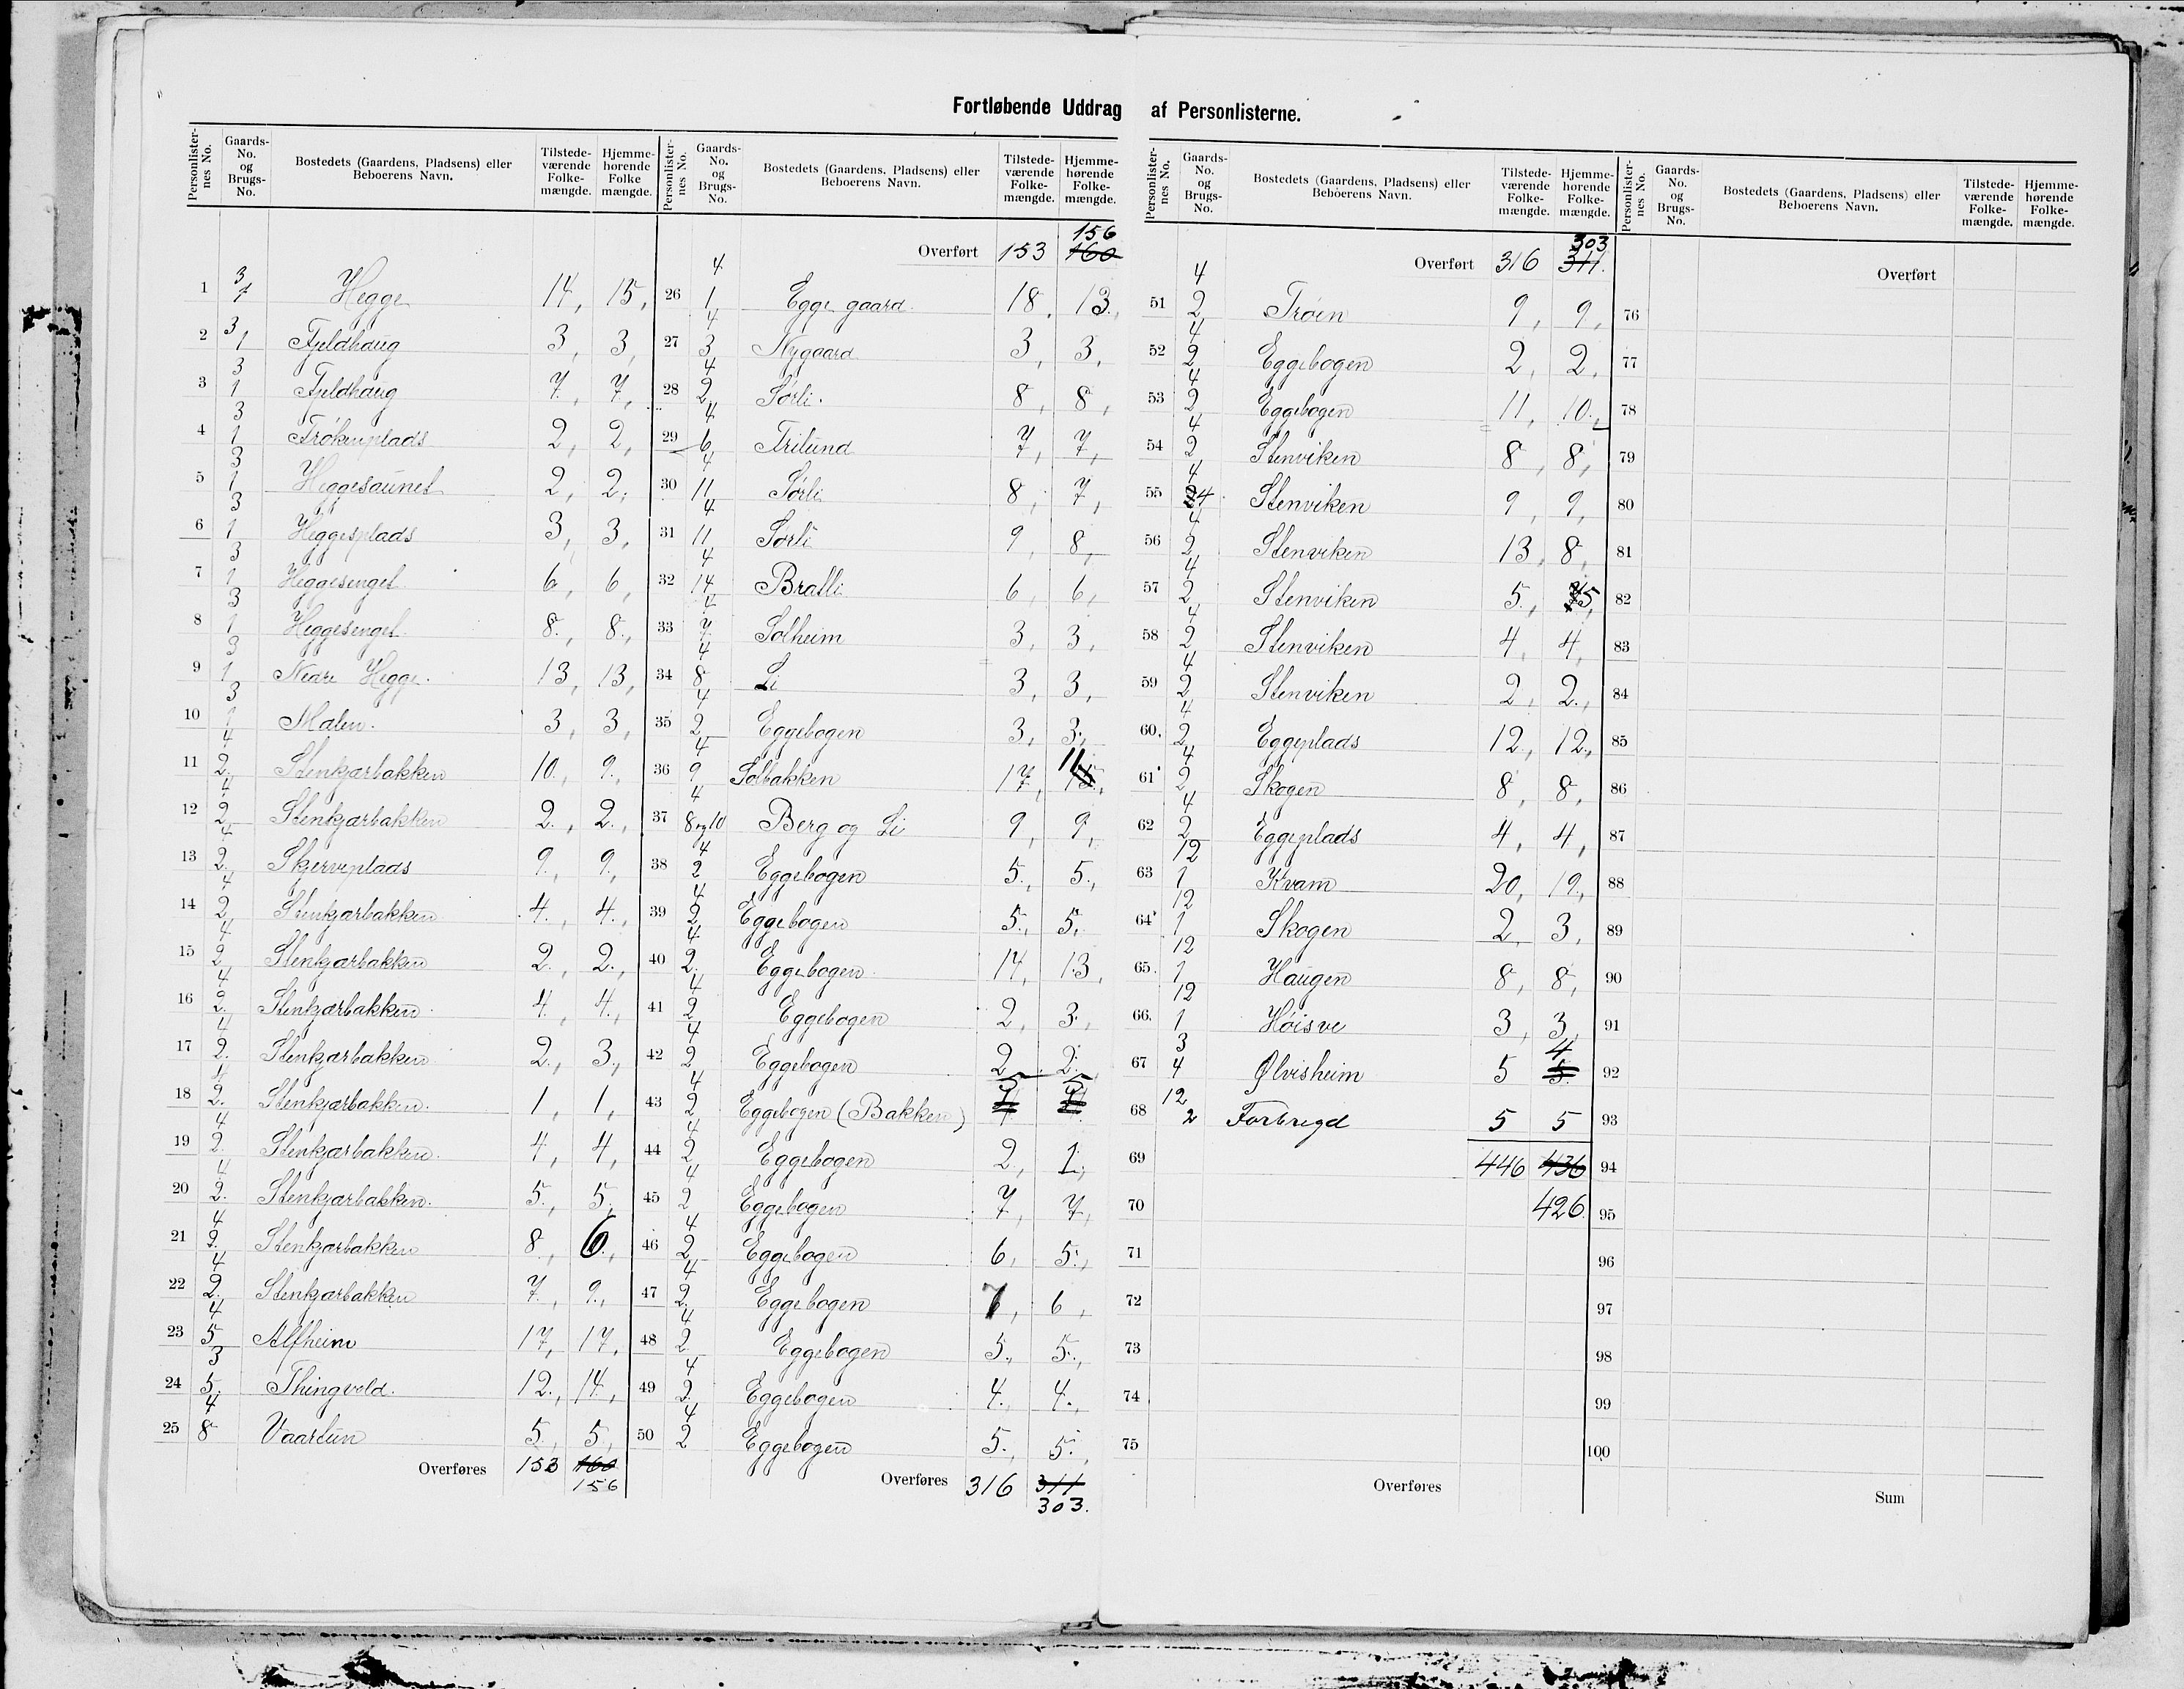 Fortløbende Uddrag af Personlisterne.
Personlister-nes No. Gaards-No. og Brugs-No. Bostedets (Gaardens, Pladsens) eller Beboerens Navn. Tilstede-værende Folke-mængde. Hjemme-hørende Folke mængde.
1 3/1 Hegge 14, 15,
2 3/1 Fjeldhaug 3, 3,
3 3/1 Fjeldhaug 7, 7,
4 3/1 Frøkenplads 2, 2,
5 3/1 Heggesaunet 2, 2,
6 3/1 Heggesplads 3, 3,
7 3/1 Heggesenget 6, 6,
8 3/1 Heggesenget 8, 8,
9 3/1 Nedre Hegge. 13, 13,
10 3/1 Malen. 3, 3,
11 4/2 Stenkjærbakken 10, 9,
12 4/2 Stenkjærbakken 2, 2,
13 4/2 Skjerveplads 9, 9,
14 4/2 Stenkjærbakken 4, 4,
15 4/2 Stenkjærbakken 2, 2,
16 4/2 Stenkjærbakken 4, 4,
17 4/2 Stenkjærbakken 2, 3,
18 4/2 Stenkjærbakken. 1, 1,
19 4/2 Stenkjærbakken. 4, 4,
20 4/2 Stenkjærbakken. 5, 5,
21 4/2 Stenkjærbakken 8, 6,
22 4/2 Stenkjærbakken 7, 9,
23 4/5 Alfheim 17, 17,
24 3/5 Thingvold. 12, 14,
25 4/8 Vaartun 5, 5,
Overføres 153 160
156
Personlister-nes No. Gaards-No. og Brugs-No. Bostedets (Gaardens, Pladsens) eller Beboerens Navn. Tilstede-værende Folke-mængde. Hjemme-hørende Folke-mængde.
156
Overført 153 160
26 4/1 Egge gaard. 18, 13,
27 4/3 Nygaard 3, 3,
28 4/2 Sørli. 8, 8,
29 4/6 Trilund 7, 7,
30 4/11 Sørli 8, 7,
31 4/11 Sørli 9, 8,
32 4/14 Bratli 6, 6,
33 4/7 Solheim 3, 3,
34 4/8 Li 3, 3,
35 4/2 Eggebogen 3, 3,
36 4/9 Solbakken 17, 11
37 4/8 og 10 Berg og Li 9, 9,
38 4/2 Eggebogen 5, 5,
39 4/2 Eggebogen 5, 5,
40 4/2 Eggebogen 14, 13,
41 4/2 Eggebogen 2, 3,
42 4/2 Eggebogen 2, 2,
43 4/2 Eggebogen (Bakken) 5 5
44 4/2 Eggebogen 2, 1,
45 4/2 Eggebogen 7, 7,
46 4/2 Eggebogen 6, 5,
47 4/2 Eggebogen 7, 6,
48 4/2 Eggebogen 5, 5,
49 4/2 Eggebogen 4, 4,
50 4/2 Eggebogen 5, 5,
Overføres 316 311
303.
Personlister-nes No. Gaards-No. og Brugs-No. Bostedets (Gaardens, Pladsens) eller Beboerens Navn. Tilstede-værende Folke-mængde. Hjemme-hørende Folke-mængde.
303
Overført 316 311.
51 4/2 Trøen 9, 9,
52 4/2 Eggebogen 2, 2,
53 4/2 Eggebogen 11, 10,
54 4/2 Stenviken 8, 8,
55 4/24 Stenviken 9, 9,
56 4/2 Stenviken 13, 8,
57 4/2 Stenviken 5, 5,
58 4/2 Stenviken 4, 4,
59 4/2 Stenviken 2, 2,
60. 4/2 Eggeplads 12, 12,
61 4/2 Skogen 8, 8,
62 4/2 Eggeplads 4, 4,
63 12/1 Kvam 20, 19,
64 12/1 Skogen 2, 3,
65. 12/1 Haugen 8, 8,
66. 12/1 Høisve 3, 3,
67 3/4 Ølvisheim 5 5 4
68 12/2 Forbregd 5 5
69 446 436
70 426.
71
72
73
74
75
Overføres
Personlister-nes No. Gaards-No. og Brugs-No. Bostedets (Gaardens, Pladsens) eller Beboerens Navn. Tilstede-værende Folke-mængde. Hjemme-hørende Folke-mængde.
Overført
76
77
78
79
80
81
82
83
84
85
86
87
88
89
90
91
92
93
94
95
96
97
98
99
100
Sum